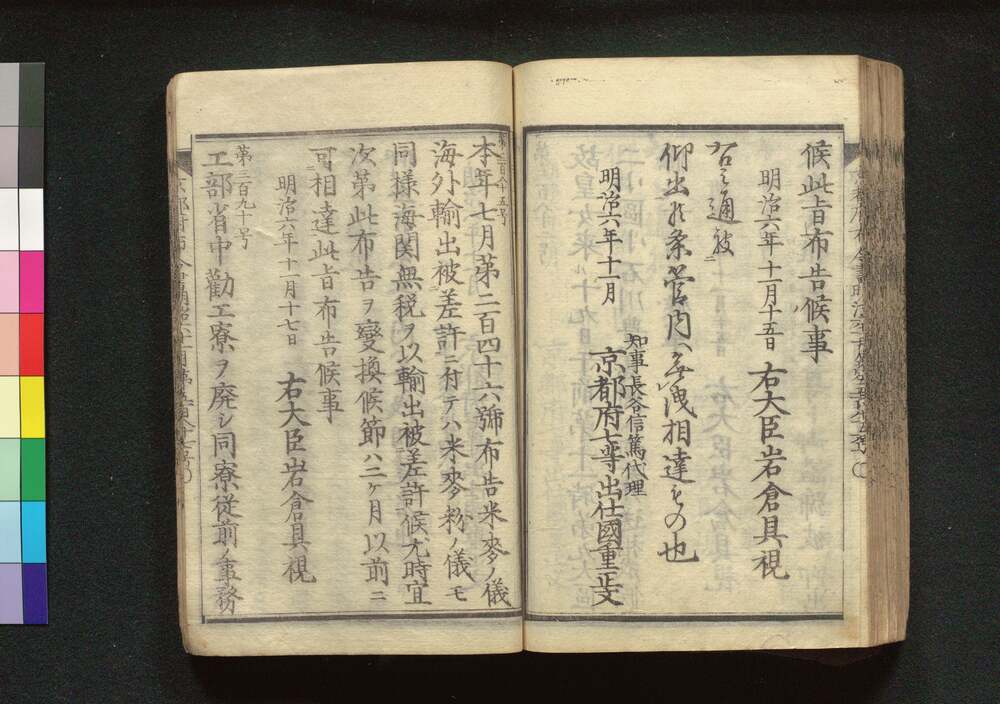 候此旨布告候事
明治六年十一月十五日 右大臣岩倉具視
右之通被
仰出候条管内ヘ無洩相達もの也
知事長谷信篤代理
明治六年十一月 京都府七等出仕國重正文
本年七月第二百四十六號布告米麥ノ儀
海外輸出被差許ニ付テハ米麥粉ノ儀モ
同様海関無税ヲ以輸出被差許候尤時宜
次第此布告ヲ變換候節ハ二ヶ月以前ニ
可相達此旨布告候事
明治六年十一月十七日 右大臣岩倉具視
第三百九十号
工部省中勸工寮ヲ廃シ同寮従前ノ事務